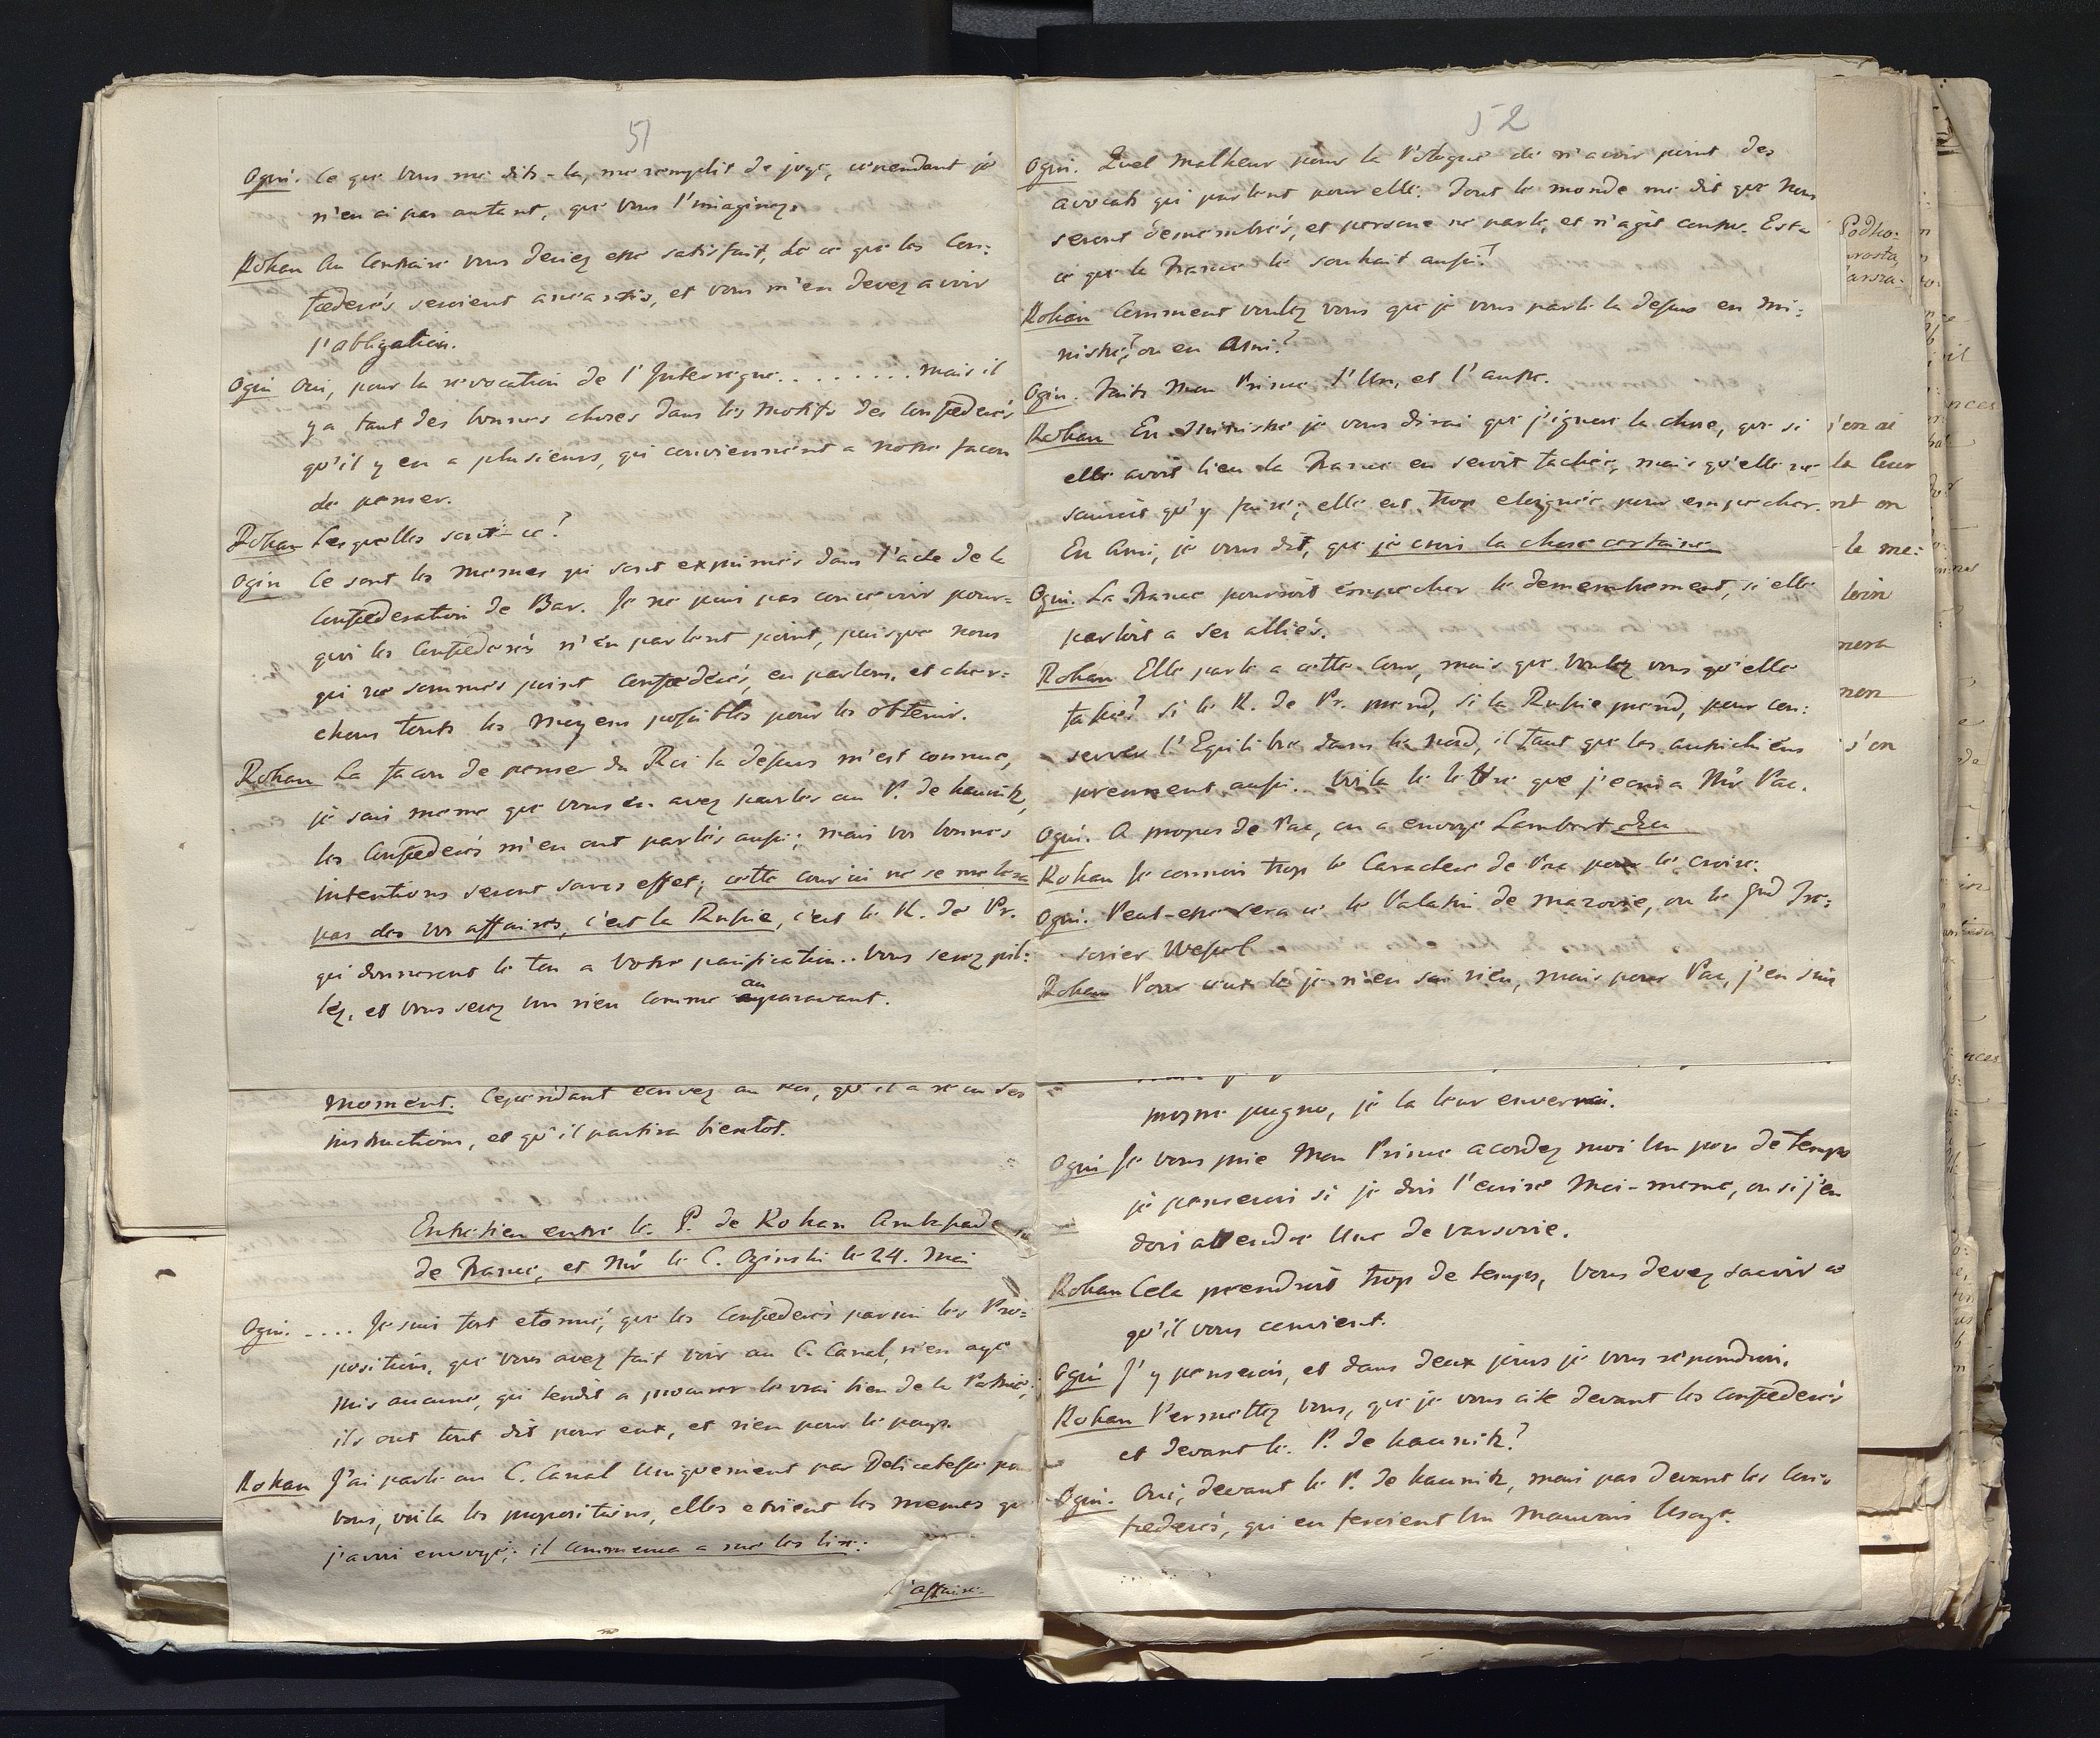 51
Ogin. Ce que vous me dits-la, me remplit de joye, cependant je
n'en ai pas autant, que vous l'imaginez.
Rohan Au Contraire vous deviez etre satisfait, de ce que les Con:
fœderés seroient aneantis, et vous m'en devez avoir
l'obligation.
Ogin Oui, pour la revocation de l'Interregne......... mais il
ya tant des bonnes choses dans les motifs des Confœderés
qu'il y en a plusieurs, qui conviennent a notre facon
de penser.
Rohan Lesquelles sont-ce?
Ogin Ce sont les memes qui sont exprimés dans l'acte de la
Confœderation de Bar. Je ne puis pas concevoir pour=
quoi les Confœderés n'en parlent point, puisque nous
qui ne sommes point Confœderés, en parlons, et cher=
chons touts les moyens possibles pour les obtenir.
Rohan La facon de penser du Roi la dessus m'est connue,
je sais meme que vous en avez parler au P. de Kaunitz,
les Confœderés m'en ont parlés aussi; mais vos bonnes
intentions seront sans effet; cette cour ici ne se melera
pas des vos affaires, c'est la Russie, c'est le R. de Pr.
qui donneront le ton a votre pacification.. Vous serez pil:
lez, et vous serez un rien comme auparavant.
moment. Cependant ecrivez au Roi, qu'il a recu ses
instructions, et qu'il partira bientot.
Entretien entre le P. de Rohan Ambassade
de France, et Mr le C. Oginski le 24. Mai
Ogin. .... Je suis fort etonné, que les Confœderés parmi les Pro=
positions, que vous avez fait voir au C. Canal, n'en aye
mis aucune, qui tendit a procurer le vrai bien de la Patrie;
ils ont tout dit pour eux, et rien pour le pays.
Rohan J'ai parlé au C. Canal Uniquement par Delicatesse po
vous, voila les propositions, elles etoient les memes qu
j'avoi envoyé; il commenca a me les lire:
l'affaire
52
Ogin. Quel malheur pour la Pologne de n'avoir point des
avocats qui parlent pour elle. Tout le monde me dit que nous
seront demembrés, et persone ne parle, et n'agit contre. Esta
ce que la France le souhait aussi?
Rohan Comment voulez vous que je vous parle la dessus en Mi:
nistre? ou en Ami?
Ogin. Faits Mon Prince l'Un, et l'autre.
Rohan En Ministre je vous dirai que j'ignore la chose, que si
elle avoit lieu la France en seroit fachée, mais qu'elle ne
sauroit qu'y faire; elle est trop eloignée pour empecher.
En Ami, je vous dit, que je crois la chose certaine
Ogin. La France pourroit empecher le demembrement, si elle
parloit a ses alliés.
Rohan Elle parle a cette Cour, mais que voulez vous qu'elle
fasse? si le R. de Pr. prend, si la Russie prend, pour con:
server l'Equilibre dans le nord, il faut que les autrichiens
prennent aussi. Voila la lettre que j'ecris a Mr Pac.
Ogin. A propos de Pac, on a envoyé Lambert
Rohan Je connois trop le Caractere de Pac pour le croire.
Ogin. Peut-etre sera ce le Palatin de Mazovie, ou le Gnd Tre:
sorier Wessel
Rohan Pour ceux la je n'en sai rien, mais pour Pac, j'en suis
meme je la leur enverrai.
Ogin Je vous prie Mon Prince acordez moi Un peu de temps
je penserai si je dois l'ecrire Moi-meme, ou si j'en
dois attendre Une de varsovie.
Rohan Cela prendroit trop de temps, Vous devez savoir ce
qu'il vous convient.
Ogin J'y penserai, et dans deux jours je vous repondrai.
Rohan Permettez vous, que je vous cite devant les Confœderés
et devant le P. de Kaunitz?
Ogin. Oui, devant le P. de Kaunitz, mais pas devant les Con:
fœderés, qui en feroient Un mauvais Usage.
j'en ai
la leur
nt on
le me:
loin
nera
non
s'en